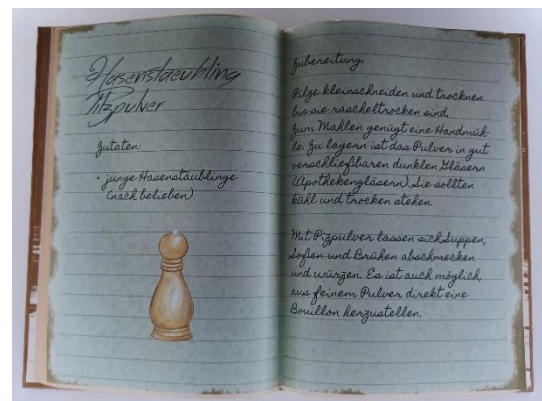 Hasenstaeubling
Pilzpulver
Zutaten:
• junge Hasenstäublinge
(nach belieben)
Zubereitung:
Pilze kleinschneiden und trocknen
bis sie rascheltrocken sind,
zum Mahlen genügt eine Handmüh-
le. Zu lagern ist das Pulver in gut
verschließbaren dunklen Gläsern
(Apothekengläsern). Sie sollten
kühl und trocken stehen.
Mit Pizpulver lassen sich Suppen,
Soßen und Brühen abschmecken
und würzen. Es ist auch möglich,
aus feinem Pulver direkt eine
Bouillon herzustellen.